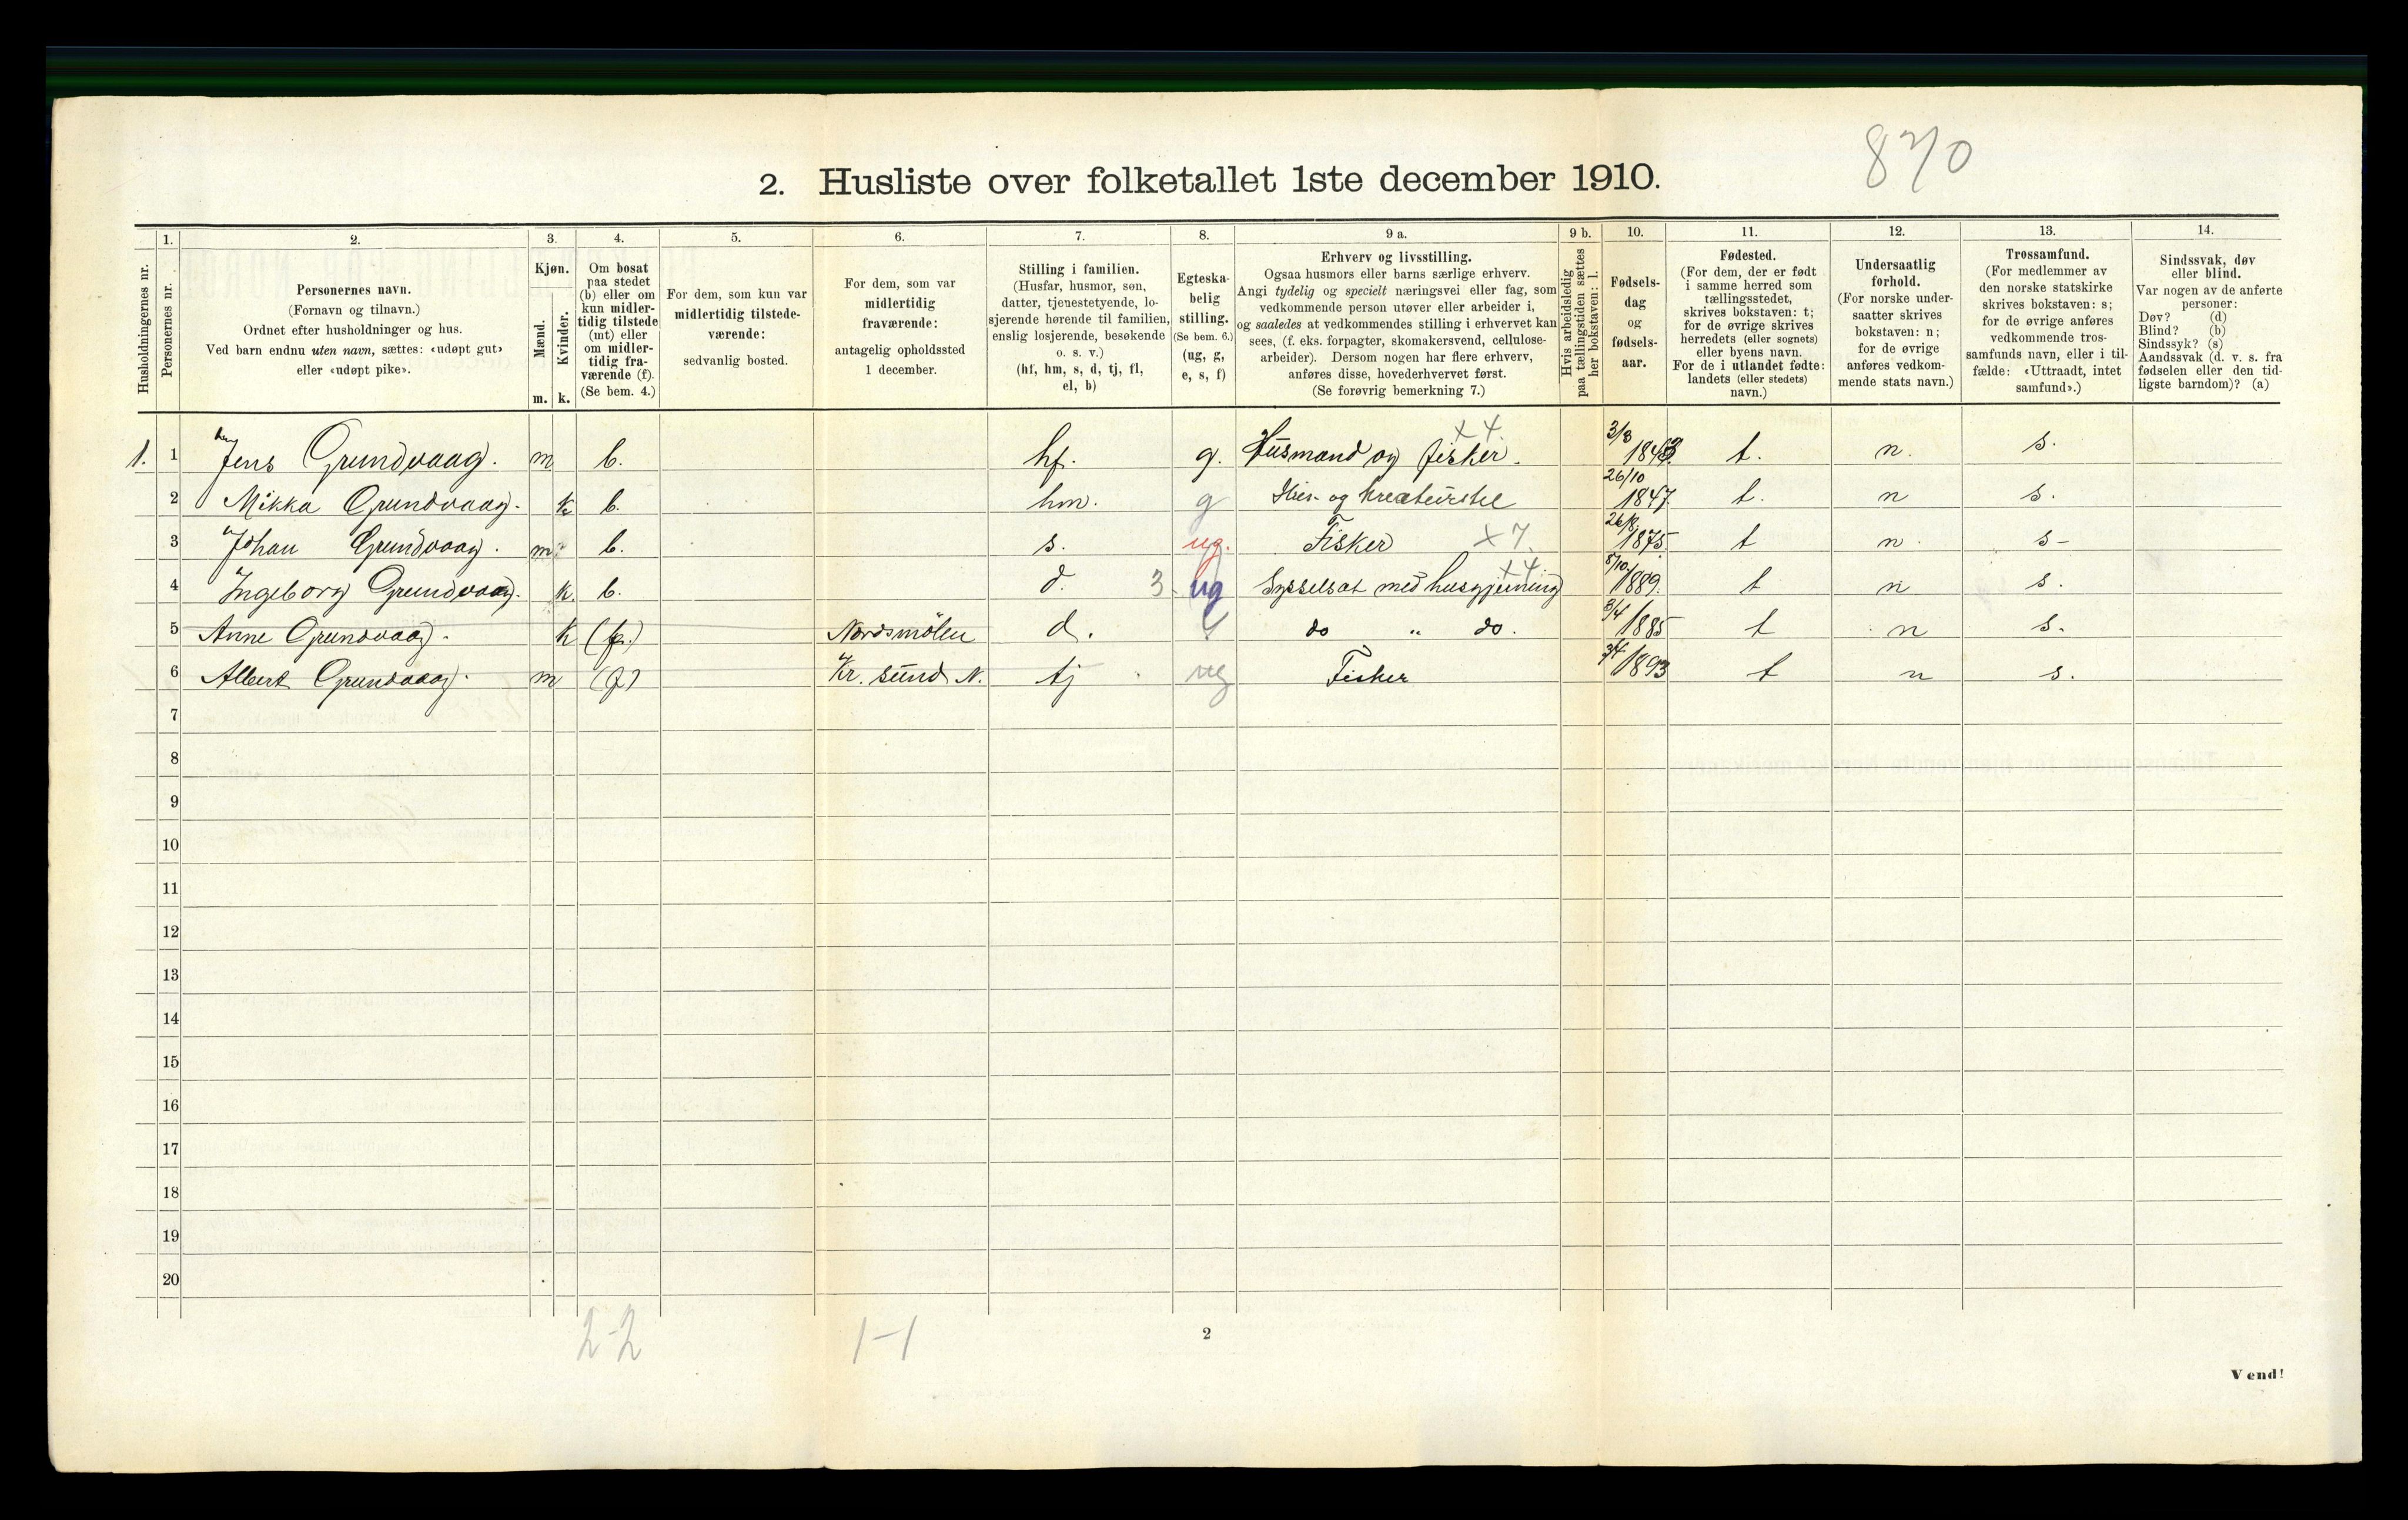 870
2. Husliste over folketallet 1ste december 1910.
Husholdningernes nr.
1.
Personernes nr.
2.
Personernes navn.
(Fornavn og tilnavn.)
Ordnet efter husholdninger og hus.
Ved barn endnu uten navn, sættes: «udøpt gut»
eller «udøpt pike».
3.
Kjøn.
Mænd.
Kvinder.
m. k.
4.
Om bosat
paa stedet
(b) eller om
kun midler-
tidig tilstede
(mt) eller
om midler-
tidig fra-
værende (f).
(Se bem. 4.)
5.
For dem, som kun var
midlertidig tilstede-
værende:
sedvanlig bosted.
6.
For dem, som var
midlertidig
fraværende:
antagelig opholdssted
1 december.
7.
Stilling i familien.
(Husfar, husmor, søn,
datter, tjenestetyende, lo-
sjerende hørende til familien,
enslig losjerende, besøkende
o. s. v.)
(hf, hm, s, d, tj, fl,
el, b)
8.
Egteska-
belig
stilling.
(Se bem. 6.)
(ug, g,
e, s, f)
9 a.
Erhverv og livsstilling.
Ogsaa husmors eller barns særlige erhverv.
Angi tydelig og specielt næringsvei eller fag, som
vedkommende person utøver eller arbeider i,
og saaledes at vedkommendes stilling i erhvervet kan
sees, (f. eks. forpagter, skomakersvend, cellulose-
arbeider). Dersom nogen har flere erhverv,
anføres disse, hovederhvervet først.
(Se forøvrig bemerkning 7.)
9 b.
Hvis arbeidsledig
paa tællingstiden sættes
her bokstaven: l.
10.
Fødsels-
dag
og
fødsels-
aar.
11.
Fødested.
(For dem, der er født
i samme herred som
tællingsstedet,
skrives bokstaven: t;
for de øvrige skrives
herredets (eller sognets)
eller byens navn.
For de i utlandet fødte:
landets (eller stedets)
navn.)
12.
Undersaatlig
forhold.
(For norske under-
saatter skrives
bokstaven: n;
for de øvrige
anføres vedkom-
mende stats navn.)
13.
Trossamfund.
(For medlemmer av
den norske statskirke
skrives bokstaven: s;
for de øvrige anføres
vedkommende tros-
samfunds navn, eller i til-
fælde: «Uttraadt, intet
samfund».)
14.
Sindssvak, døv
eller blind.
Var nogen av de anførte
personer:
Døv? (d)
Blind? (b)
Sindssyk? (s)
Aandssvak (d. v. s. fra
fødselen eller den tid-
ligste barndom)? (a)
1. 1 Jens Grundvaag. m b. hf. g. Husmand og fisker. x 4. 3/8 1843 t. n. s.
2 Mikka Grundvaag. k b. hm. g Hus- og kreaturstel 26/10 1847. t. n s.
3 Johan Grundvaag. m b. s. ug. Fisker x 7. 26/8 1875. t n. s-
4 Ingeborg Grundvaag. k. b. d. 3- ug Sysselsat med husgjerning x 4 8/10 1889. t n s.
5 Anne Grundvaag. k (f.) Nordsmølen d. do " do. 8/4 1885 t n s.
6 Albert Grundvaag. m (f) Kr. sund N. tj ug Fisker 1893 t n s.
7
8
9
10
11
12
13
14
15
16
17
18
19
20
2-2 1-1
2
Vend!